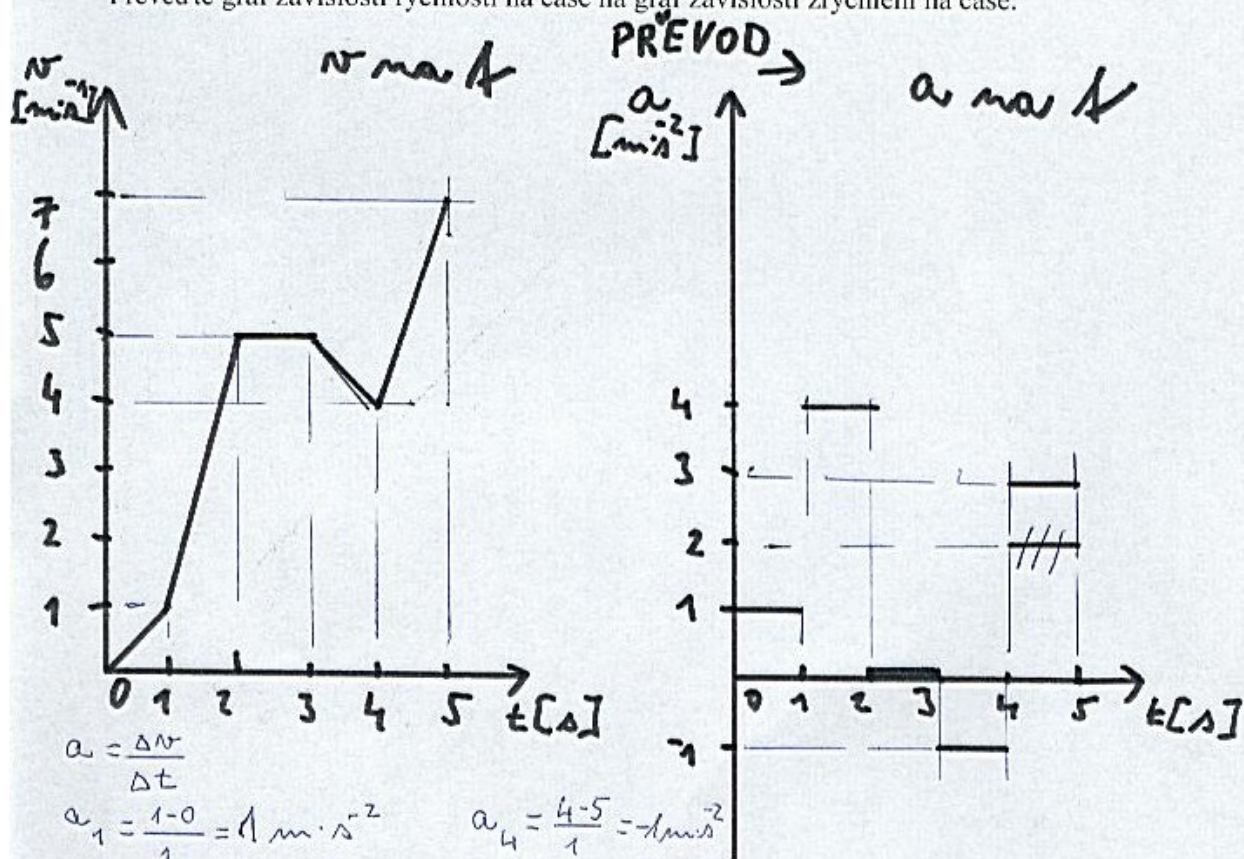 Převeďte graf závislosti rychlosti na čase na graf závislosti zrychlení na čase.
PŘEVOD →
v na t
a na t
v
[m·s⁻¹]
7
6
5
4
3
2
1
0 1 2 3 4 5 t[s]
a
[m·s⁻²]
4
3
2
1
0 1 2 3 4 5 t[s]
-1
a = Δv/Δt
a₁ = (1-0)/1 = 1 m·s⁻²
a₄ = (4-5)/1 = -1 m·s⁻²